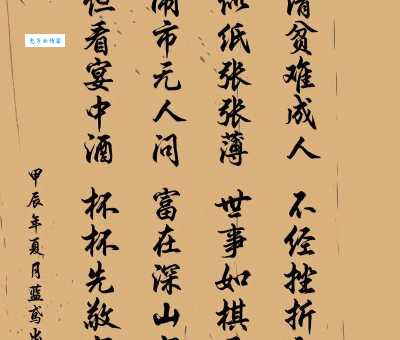 清贫难成人 不经挫折
似纸张张薄 世事如棋
闹市无人问 富在深山
但看宴中酒 杯杯先敬
甲辰年夏月蓝鸢